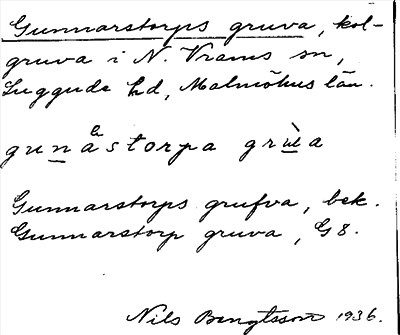 Gunnarstorps gruva, kol-
gruva i N. Vrams sn,
Luggude hd, Malmöhus län.
gunåstorpa grua
Gunnarstorps grufva, bek.
Gunnarstorp gruva, G 8.
Nils Bengtsson 1936.